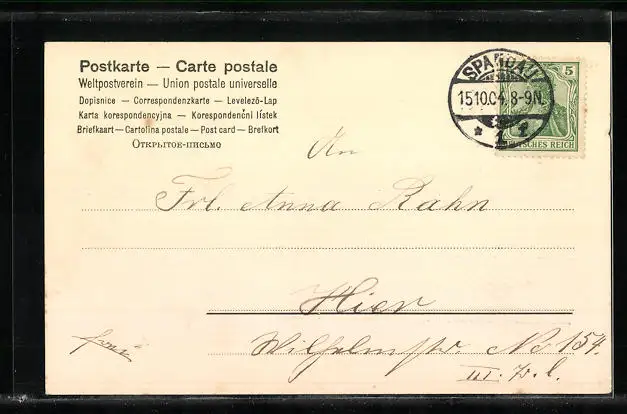 Postkarte — Carte postale
Weltpostverein — Union postale universelle
Dopisnice — Correspondenzkarte — Levelező-Lap
Karta korespondencyjna — Korespondenční lístek
Briefkaart — Cartolina postale — Post card — Brefkort
Открытое-письмо
SPANDAU
15.10.04. 8-9N.
* 1 f
5
DEUTSCHES REICH
An
Frl. Anna Rahn
Hier
Wilhelmstr. No 154.
III. Tr. l.